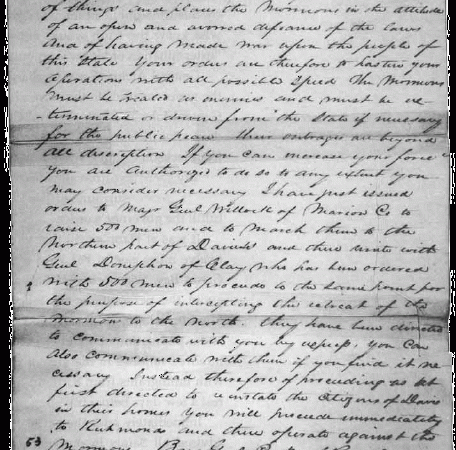 of things and places the Mormons in the attitude
of an open and avowed defiance of the laws
and of having made war upon the people of
this State Your orders are therefore to hasten your
operations with all possible speed The Mormons
must be treated as enemies and must be ex-
-terminated or driven from the State if necessary
for the public peace their outrages are beyond
all description If you can increase your force
you are Authorized to do so to any extent you
may consider necessary I have just issued
orders to Majr Genl Willock of Marion Co to
raise 500 men and to March them to the
Northern part of Daviess and there unite with
Genl Doniphan of Clay who has been ordered
with 500 men to proceed to the same point for
the purpose of intercepting the retreat of the
Mormons to the North. They have been directed
to communicate with you by express, you can
also communicate with them if you find it ne
cessary Instead therefore of proceeding as at
first directed to reinstate the Citizens of Daviess
in their homes you will proceed immediately
to Richmond and there operate against the
53 Mormons